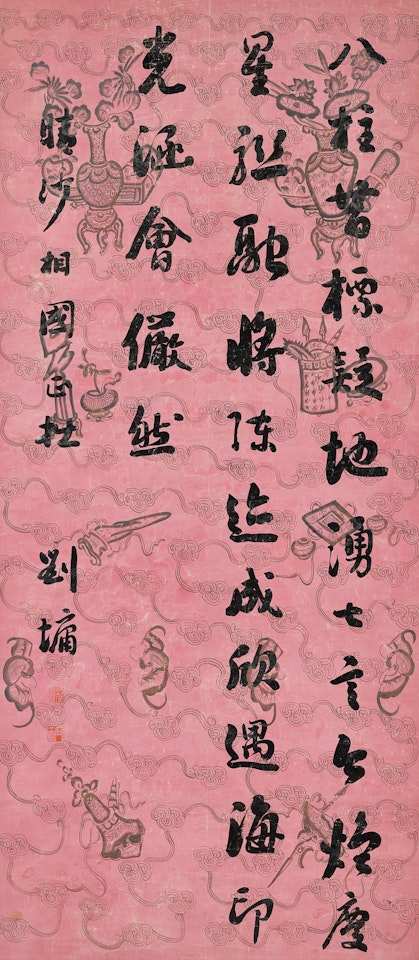 八柱標疑地湧七言今
星融將陳迹成欣遇海印
光涵會儼然
晴沙相國正
劉墉